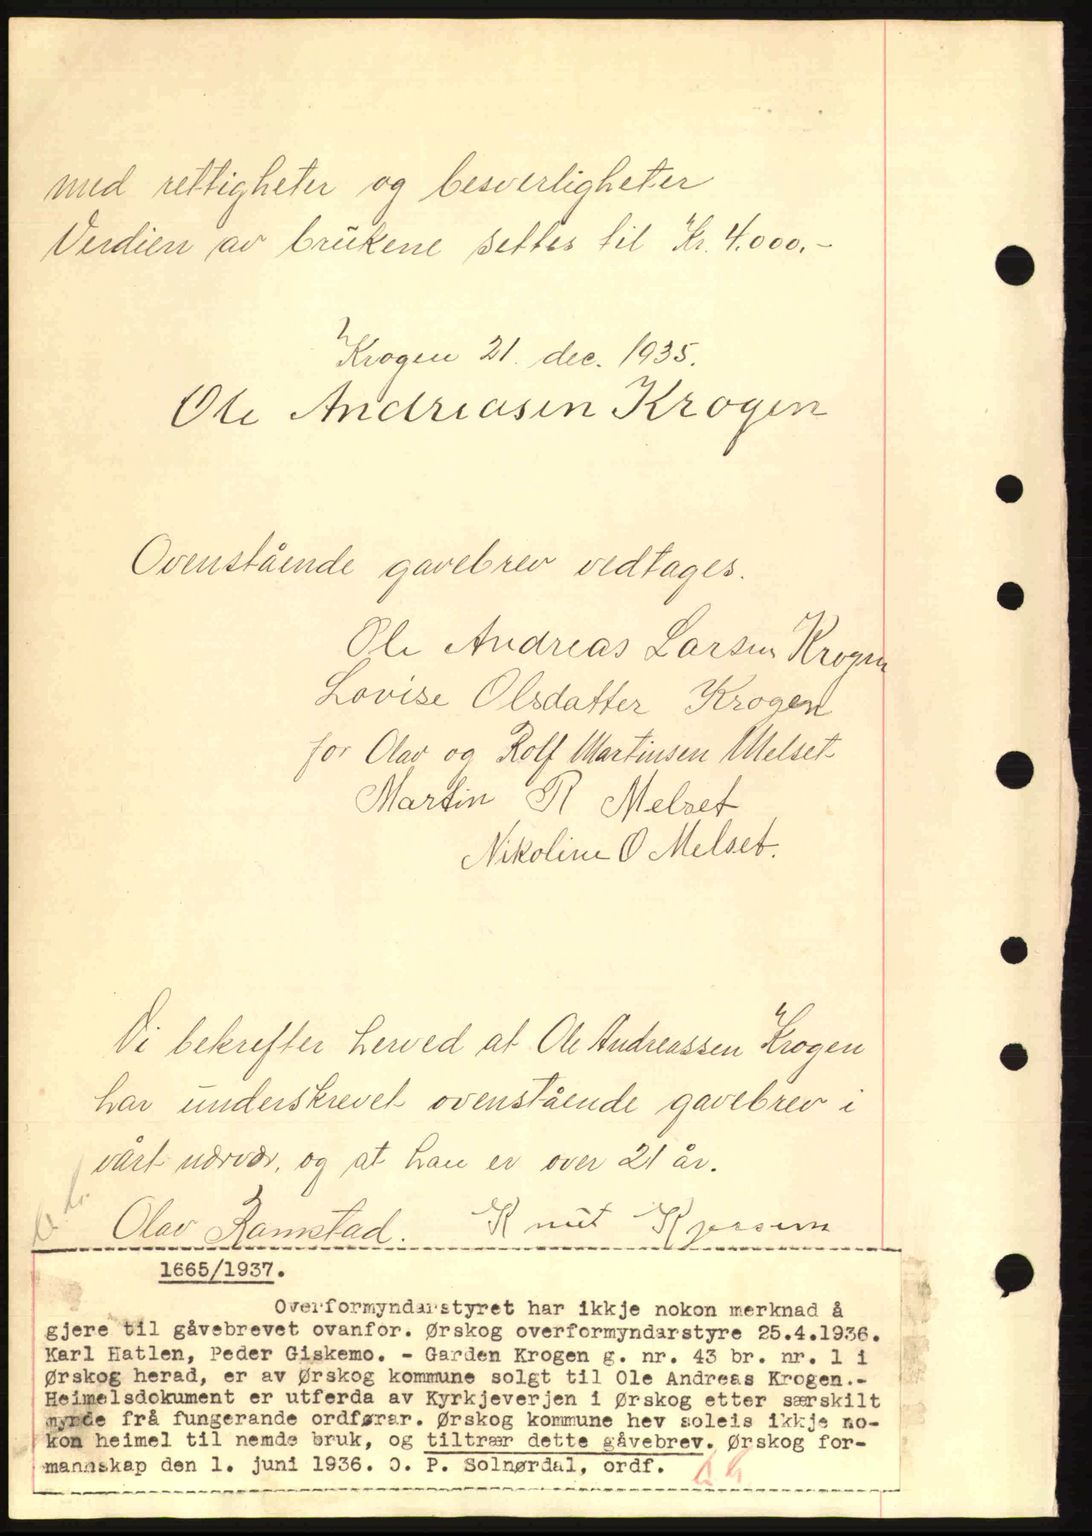 med rettigheter og besverligheter
Verdien av brukene settes til Kr. 4.000.-
Krogen 21. dec. 1935.
Ole Andreasen Krogen
Ovenstående gavebrev vedtages.
Ole Andreas Larsen Krogen
Lovise Olsdatter Krogen
for Olav og Rolf Martinsen Melset
Martin R Melset
Nikoline O Melset.
Vi bekrefter herved at Ole Andreassen Krogen
har underskrevet ovenstående gavebrev i
vårt nærvær, og at han er over 21 år.
Olav Ramstad. Knut
1665/1937.
Overformyndarstyret har ikkje nokon merknad å
gjere til gåvebrevet ovanfor. Ørskog overformyndarstyre 25.4.1936.
Karl Hatlen, Peder Giskemo. - Garden Krogen g. nr. 43 br. nr. 1 i
Ørskog herad, er av Ørskog kommune solgt til Ole Andreas Krogen.-
Heimelsdokument er utferda av Kyrkjeverjen i Ørskog etter særskilt
mynde frå fungerande ordførar. Ørskog kommune hev soleis ikkje no-
kon heimel til nemde bruk, og tiltrær dette gåvebrev. Ørskog for-
mannskap den 1. juni 1936. O. P. Solnørdal, ordf.